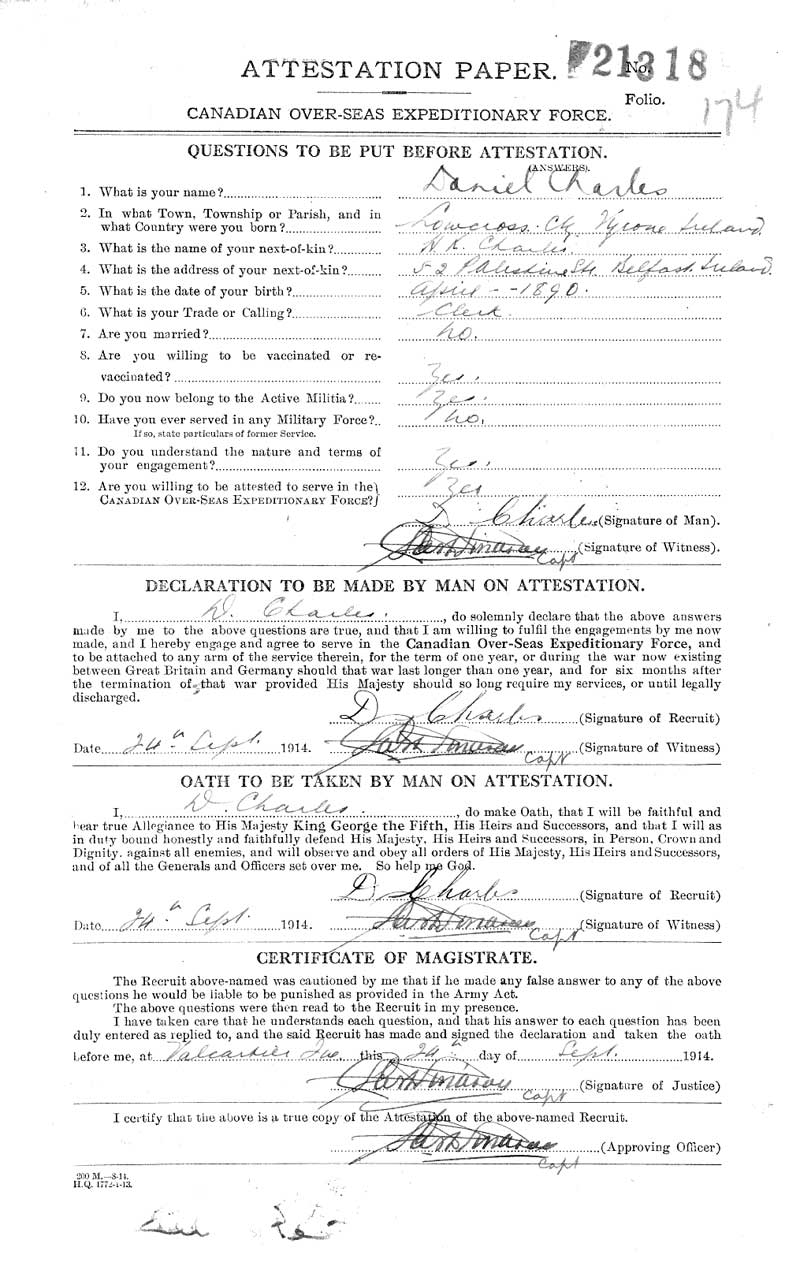 ATTESTATION PAPER.
No. 21318
Folio.
174
CANADIAN OVER-SEAS EXPEDITIONARY FORCE.
QUESTIONS TO BE PUT BEFORE ATTESTATION.
(ANSWERS).
1. What is your name? Daniel Charles
2. In what Town, Township or Parish, and in
what Country were you born? Lowcross. Cty Tyrone Ireland
3. What is the name of your next-of-kin? Charles
4. What is the address of your next-of-kin? 52 Palestine St. Belfast. Ireland
5. What is the date of your birth? April - -1890.
6. What is your Trade or Calling? Clerk
7. Are you married? No.
8. Are you willing to be vaccinated or re-
vaccinated? Yes.
9. Do you now belong to the Active Militia? Yes.
10. Have you ever served in any Military Force? No.
If so, state particulars of former Service.
11. Do you understand the nature and terms of
your engagement? Yes.
12. Are you willing to be attested to serve in the
CANADIAN OVER-SEAS EXPEDITIONARY FORCE? Yes
D Charles (Signature of Man).
Capt (Signature of Witness).
DECLARATION TO BE MADE BY MAN ON ATTESTATION.
I, D. Charles. , do solemnly declare that the above answers
made by me to the above questions are true, and that I am willing to fulfil the engagements by me now
made, and I hereby engage and agree to serve in the Canadian Over-Seas Expeditionary Force, and
to be attached to any arm of the service therein, for the term of one year, or during the war now existing
between Great Britain and Germany should that war last longer than one year, and for six months after
the termination of that war provided His Majesty should so long require my services, or until legally
discharged.
D Charles (Signature of Recruit)
Date 24th Sept. 1914. Capt (Signature of Witness)
OATH TO BE TAKEN BY MAN ON ATTESTATION.
I, D. Charles. , do make Oath, that I will be faithful and
bear true Allegiance to His Majesty King George the Fifth, His Heirs and Successors, and that I will as
in duty bound honestly and faithfully defend His Majesty, His Heirs and Successors, in Person, Crown and
Dignity, against all enemies, and will observe and obey all orders of His Majesty, His Heirs and Successors,
and of all the Generals and Officers set over me. So help me God.
D Charles (Signature of Recruit)
Date 24th Sept. 1914. Capt (Signature of Witness)
CERTIFICATE OF MAGISTRATE.
The Recruit above-named was cautioned by me that if he made any false answer to any of the above
questions he would be liable to be punished as provided in the Army Act.
The above questions were then read to the Recruit in my presence.
I have taken care that he understands each question, and that his answer to each question has been
duly entered as replied to, and the said Recruit has made and signed the declaration and taken the oath
before me, at Valcartier Que. this 24th day of Sept. 1914.
Capt (Signature of Justice)
I certify that the above is a true copy of the Attestation of the above-named Recruit.
(Approving Officer)
Capt
200 M.—8-14.
H.Q. 1772-1-13.